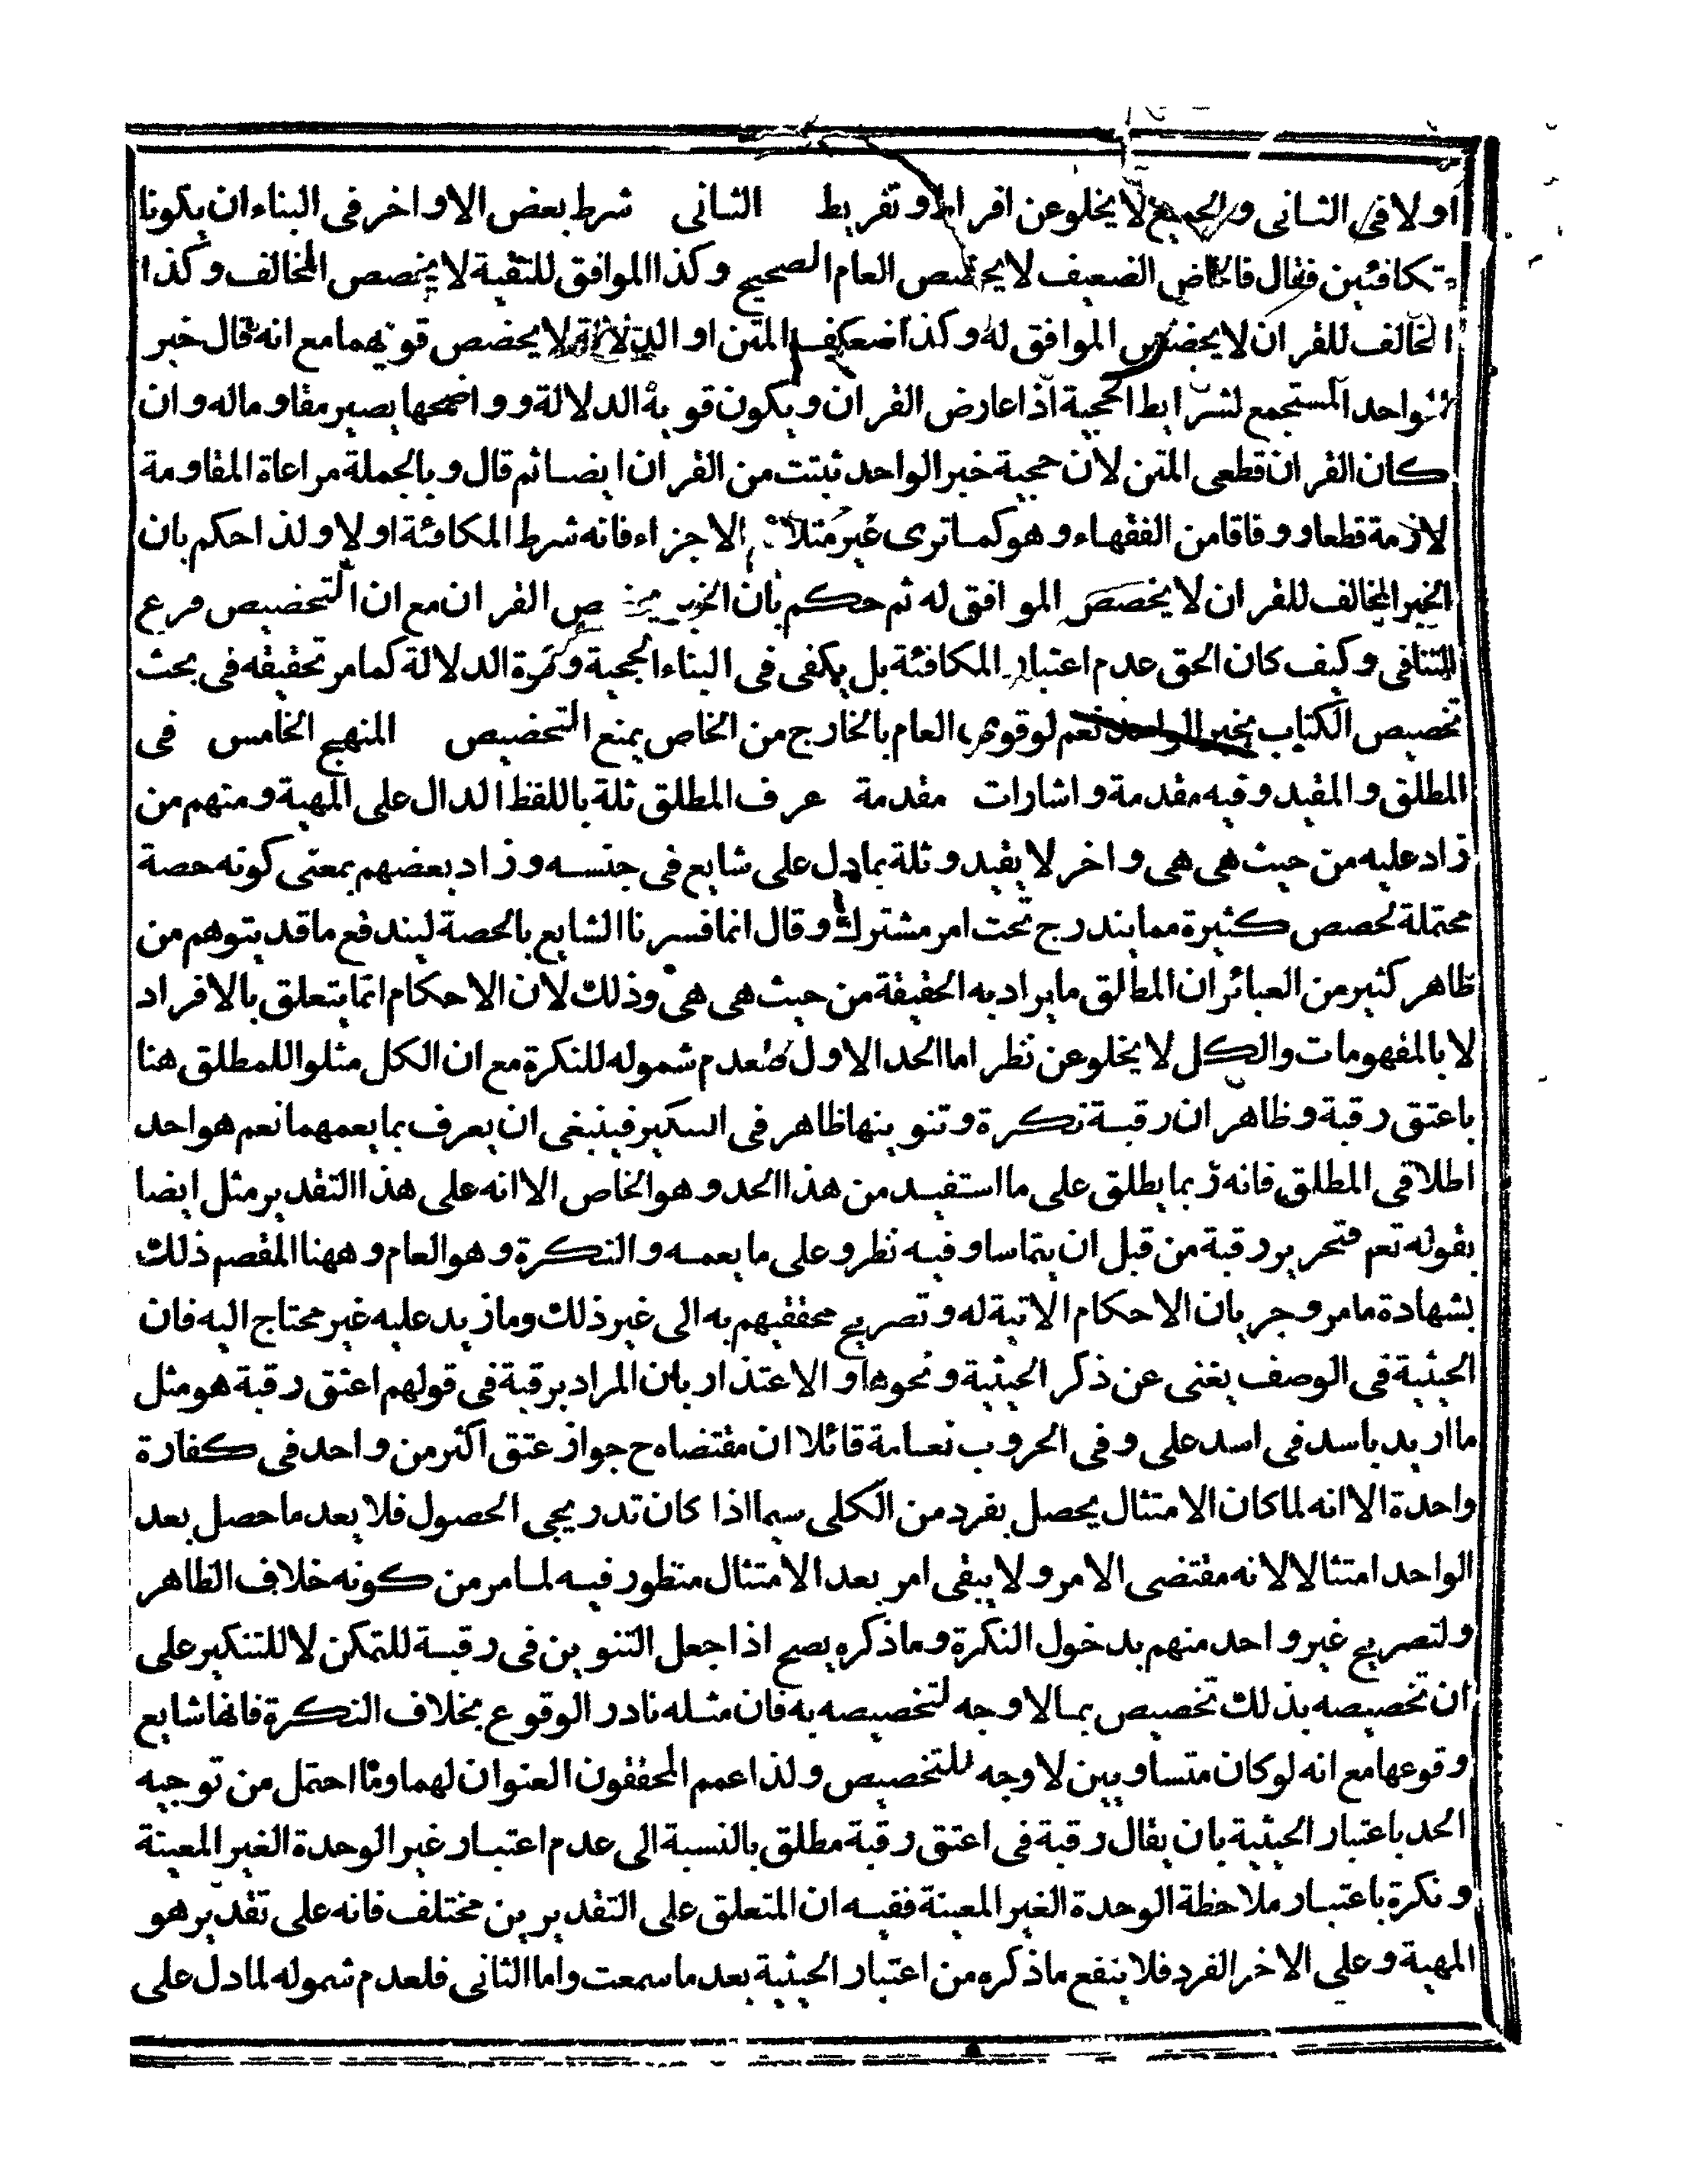 او لا فى الثانى والجميع لا يخلو عن افراط و تفريط الثانى شرط بعض الاواخر فى البناء ان يكونا
متكافئين فقال فالخاص الضعيف لا يخصص العام الصحيح وكذا الموافق للتقية لا يخصص المخالف وكذا
المخالف للقران لا يخصص الموافق له وكذا ضعيف المتن او الدلالة لا يخصص قويهما مع انه قال خبر
الواحد المستجمع لشرايط الحجية اذا عارض القران ويكون قوية الدلالة وواضحها يصير مقاوما له وان
كان القران قطعى المتن لان حجية خبر الواحد ثبتت من القران ايضا ثم قال وبالجملة مراعاة المقاومة
لازمة قطعا ووفاقا من الفقهاء وهو كما ترى غير متلائم الاجزاء فانه شرط المكافئة اولا ولذا حكم بان
الخبر المخالف للقران لا يخصص الموافق له ثم حكم بان الخبر يخصص القران مع ان التخصيص فرع
التنافى وكيف كان الحق عدم اعتبار المكافئة بل يكفى فى البناء الحجية وقوة الدلالة كما مر تحقيقه فى بحث
تخصيص الكتاب بخبر الواحد نعم لو قوى العام بالخارج من الخاص يمنع التخصيص المنهج الخامس فى
المطلق والمقيد وفيه مقدمة واشارات مقدمة عرف المطلق ثلة باللفظ الدال على المهية ومنهم من
زاد عليه من حيث هى هى واخر لا يقيد وثلة بما دل على شايع فى جنسه وزاد بعضهم بمعنى كونه حصة
محتملة لحصص كثيرة مما يندرج تحت امر مشترك وقال انما فسرنا الشايع بالحصة ليندفع ما قد يتوهم من
ظاهر كثير من العبائر ان المطلق ما يراد به الحقيقة من حيث هى هى وذلك لان الاحكام انما يتعلق بالافراد
لا بالمفهومات والكل لا يخلو عن نظر اما الحد الاول فلعدم شموله للنكرة مع ان الكل مثلوا للمطلق هنا
باعتق رقبة وظاهر ان رقبة نكرة وتنوينها ظاهر فى التنكير فينبغى ان يعرف بما يعمهما نعم هو احد
اطلاقى المطلق فانه ربما يطلق على ما استفيد من هذا الحد وهو الخاص الا انه على هذا التقدير مثل ايضا
بقوله تعم فتحرير رقبة من قبل ان يتماسا وفيه نظر وعلى ما يعمه والنكرة وهو العام وههنا المقصم ذلك
بشهادة ما مر وجريان الاحكام الاتية له وتصريح محققيهم به الى غير ذلك وما زيد عليه غير محتاج اليه فان
الحيثية فى الوصف يغنى عن ذكر الحيثية ونحوها والاعتذار بان المراد برقبة فى قولهم اعتق رقبة هو مثل
ما اريد باسد فى اسد على وفى الحروب نعامة قائلا ان مقتضاه ح جواز عتق اكثر من واحد فى كفارة
واحدة الا انه لما كان الامتثال يحصل بفرد من الكلى سيما اذا كان تدريجى الحصول فلا يعد ما حصل بعد
الواحد امتثالا لانه مقتضى الامر ولا يبقى امر بعد الامتثال منظور فيه لما مر من كونه خلاف الظاهر
ولتصريح غير واحد منهم بدخول النكرة وما ذكره يصح اذا جعل التنوين فى رقبة للتمكن لا للتنكير على
ان تخصيصه بذلك تخصيص بما لا وجه لتخصيصه به فان مثله نادر الوقوع بخلاف النكرة فانها شايع
وقوعها مع انه لو كان متساويين لا وجه للتخصيص ولذا عمم المحققون العنوان لهما وما احتمل من توجيه
الحد باعتبار الحيثية بان يقال رقبة فى اعتق رقبة مطلق بالنسبة الى عدم اعتبار غير الوحدة الغير المعينة
ونكرة باعتبار ملاحظة الوحدة الغير المعينة ففيه ان المتعلق على التقديرين مختلف فانه على تقدير هو
المهية وعلى الاخر الفرد فلا ينفع ما ذكره من اعتبار الحيثية بعد ما سمعت واما الثانى فلعدم شموله لما دل على